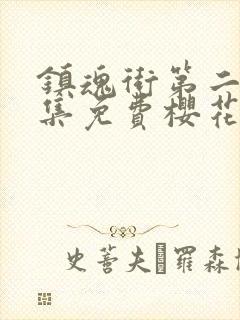 鎮魂街第二
集免費櫻花
史蒂夫 羅森